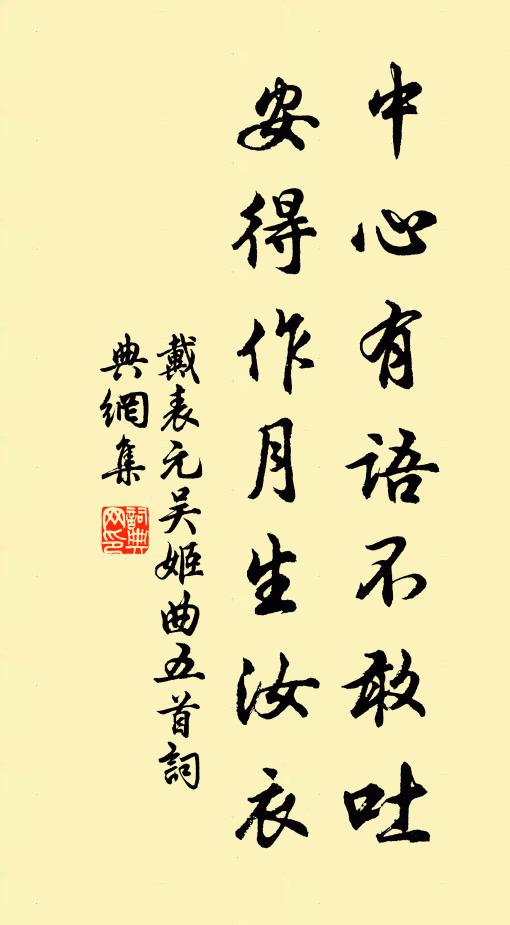 中心有語不敢吐
安得作月生汝衣
戴表元吴姬曲五首詞
典網集
詞典
网印